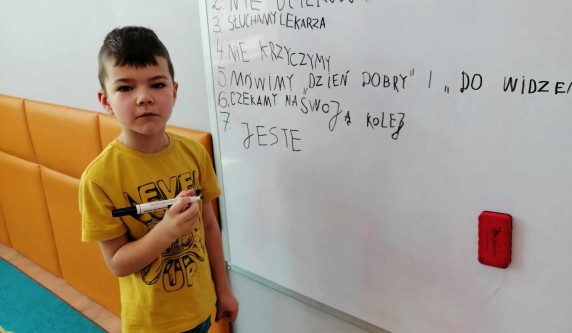 2. NIE
3. SŁUCHAMY LEKARZA
4. NIE KRZYCZYMY
5. MÓWIMY „DZIEŃ DOBRY" I „DO WIDZEN
6. CZEKAMY NA SWOJĄ KOLEJ
7. JESTE
LEVEL
UP